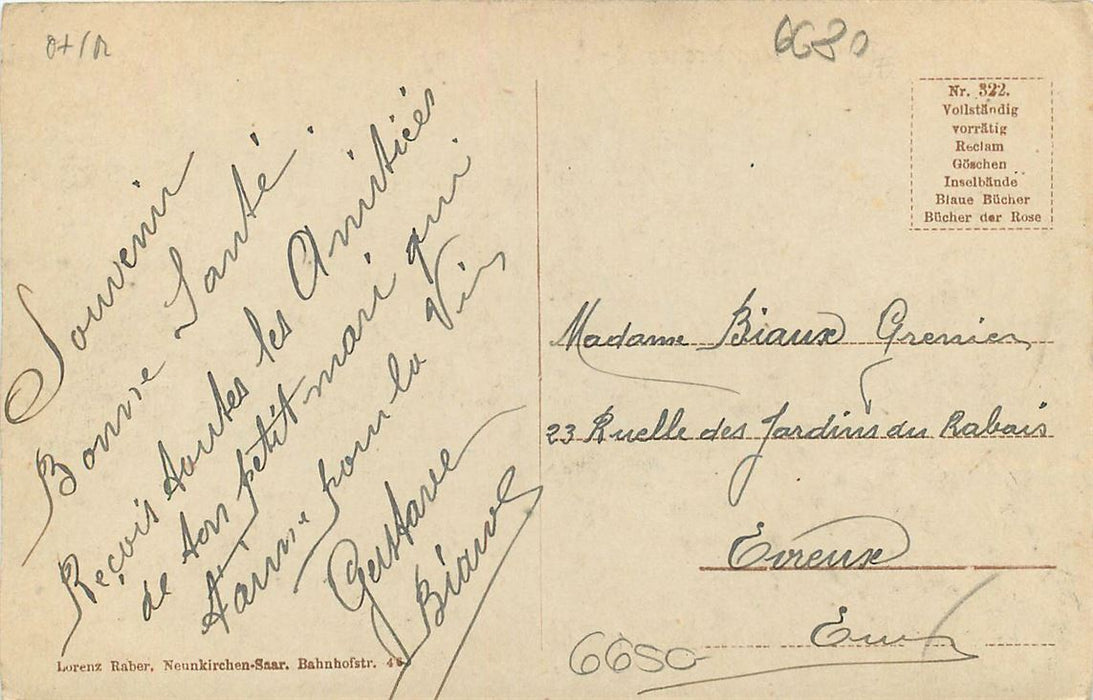 6680
Nr. 322.
Vollständig
vorrätig
Reclam
Göschen
Inselbände
Blaue Bücher
Bücher der Rose
Souvenir
Bonne Santé.
Reçois toutes les Amitiées
de ton petit mari qui
t'aime pour la Vie
Gustave
Biaux
Madame Biaux Grenier
23 Ruelle des Jardins du Rabais
Evreux
Eure
Lorenz Raber, Neunkirchen-Saar. Bahnhofstr. 46